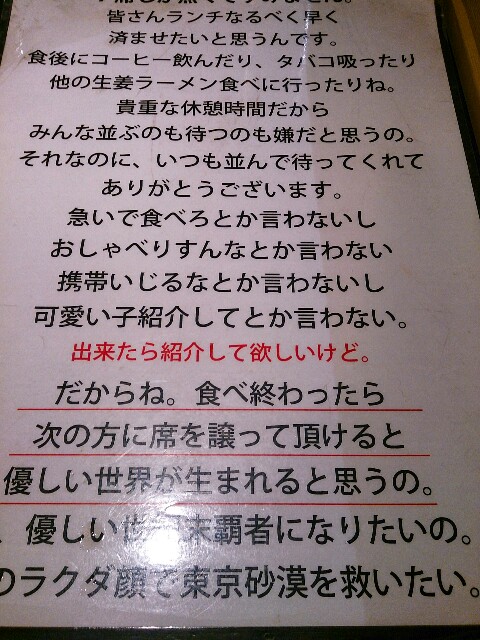 皆さんランチなるべく早く
済ませたいと思うんです。
食後にコーヒー飲んだり、タバコ吸ったり
他の生姜ラーメン食べに行ったりね。
貴重な休憩時間だから
みんな並ぶのも待つのも嫌だと思うの。
それなのに、いつも並んで待ってくれて
ありがとうございます。
急いで食べろとか言わないし
おしゃべりすんなとか言わない
携帯いじるなとか言わないし
可愛い子紹介してとか言わない。
出来たら紹介して欲しいけど。
だからね。食べ終わったら
次の方に席を譲って頂けると
優しい世界が生まれると思うの。
、優しい世 末覇者になりたいの。
のラクダ顔で東京砂漠を救いたい。